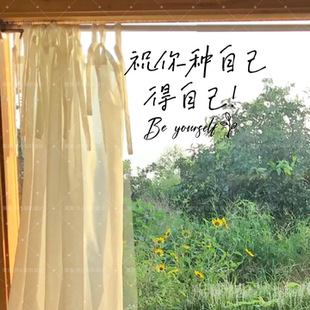 祝你种自己
得自己!
Be yourself